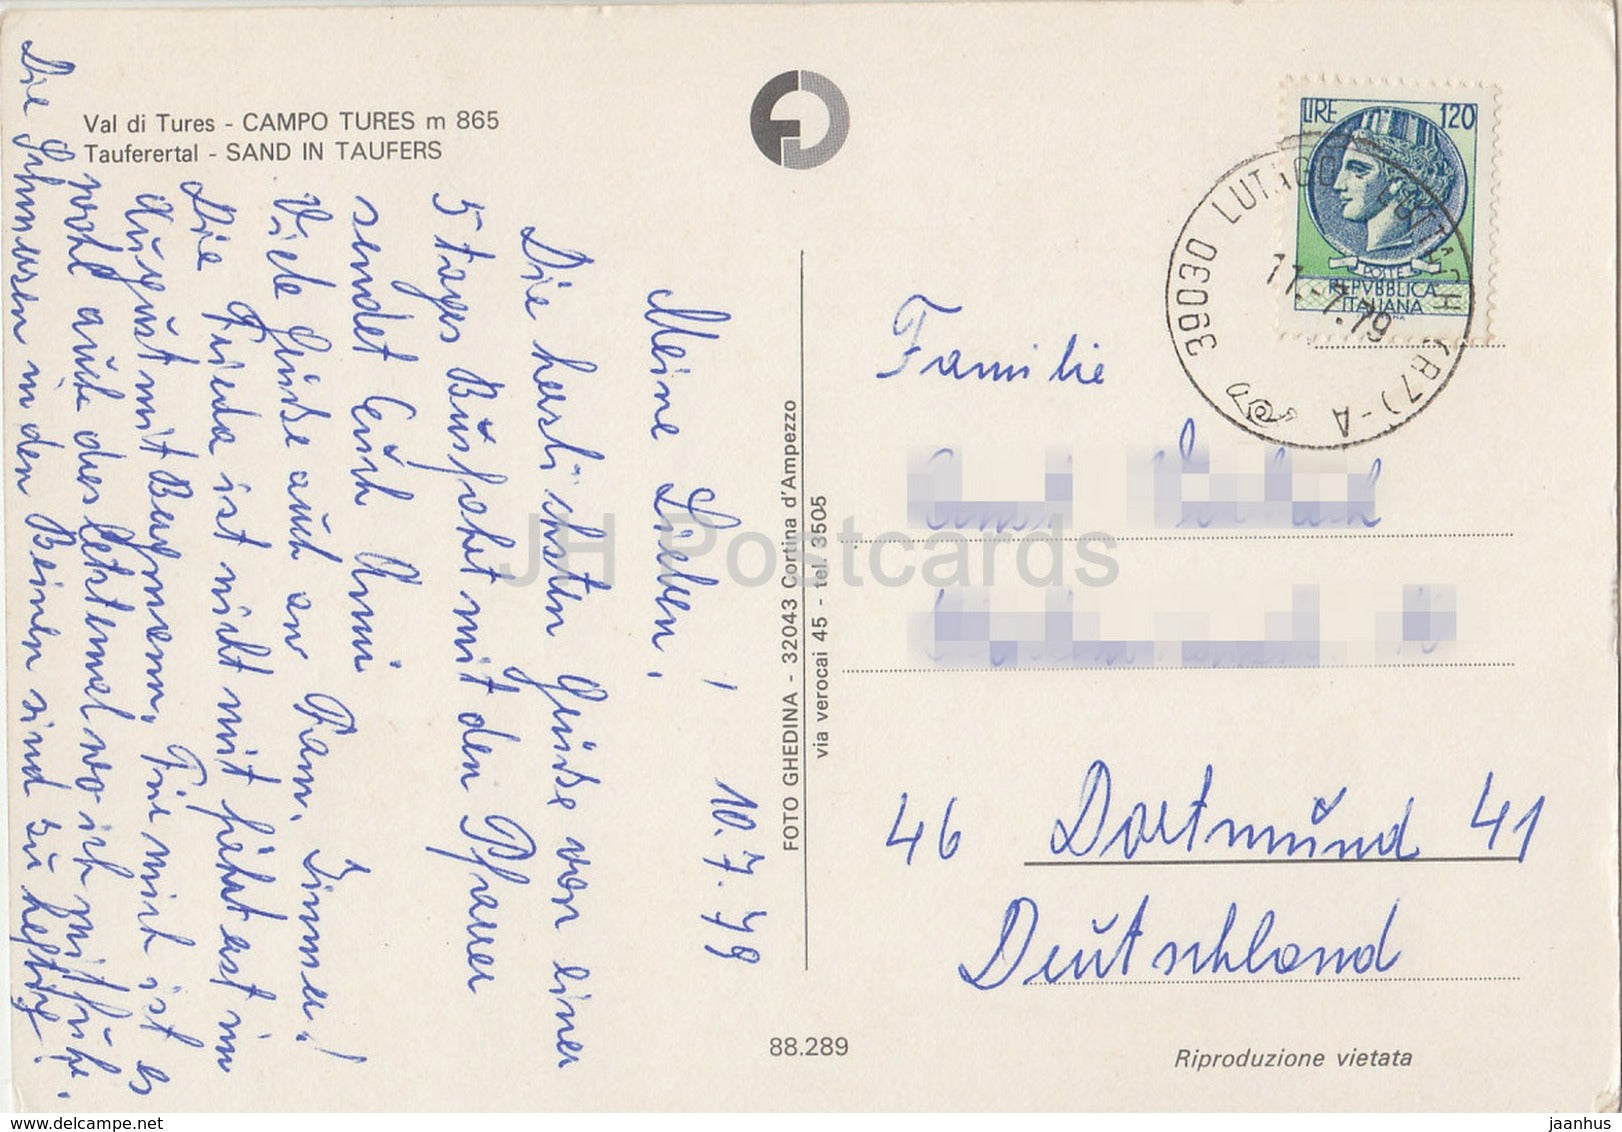 Val di Tures - CAMPO TURES m 865
Tauferertal - SAND IN TAUFERS
10.7.79
Meine Lieben!
Die herzlichsten Grüße von einer
5 tages Busfahrt mit den Pfarrer
sendet Euch Anni
Viele Grüße auch an Fam. Zimmer!
Die Frieda ist nicht mit fährt erst im
August mit Bergmann. Für mich ist es
wohl auch das letztemal wo ich mitfahre.
Die Schmerzen in den Beinen sind zu heftig.
FOTO GHEDINA - 32043 Cortina d'Ampezzo
via verocai 45 - tel. 3505
88.289
LIRE 120
POSTE
REPVBBLICA
ITALIANA
39030 LUTAGO - LUTTACH (BZ) - A
11.-7.79
Familie
46 Dortmund 41
Deutschland
Riproduzione vietata
JH Postcards
jaanhus